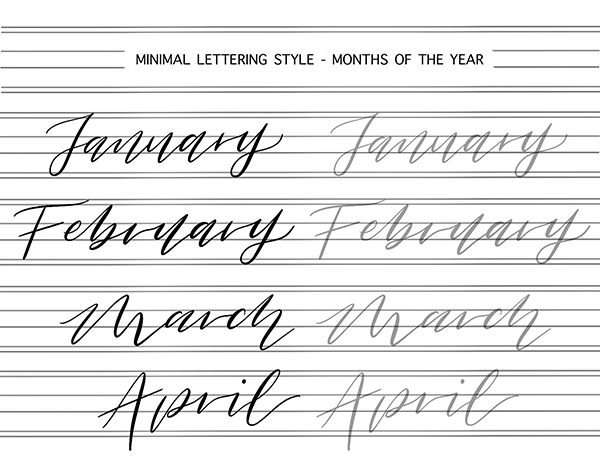 MINIMAL LETTERING STYLE - MONTHS OF THE YEAR
January January
February February
March March
April April